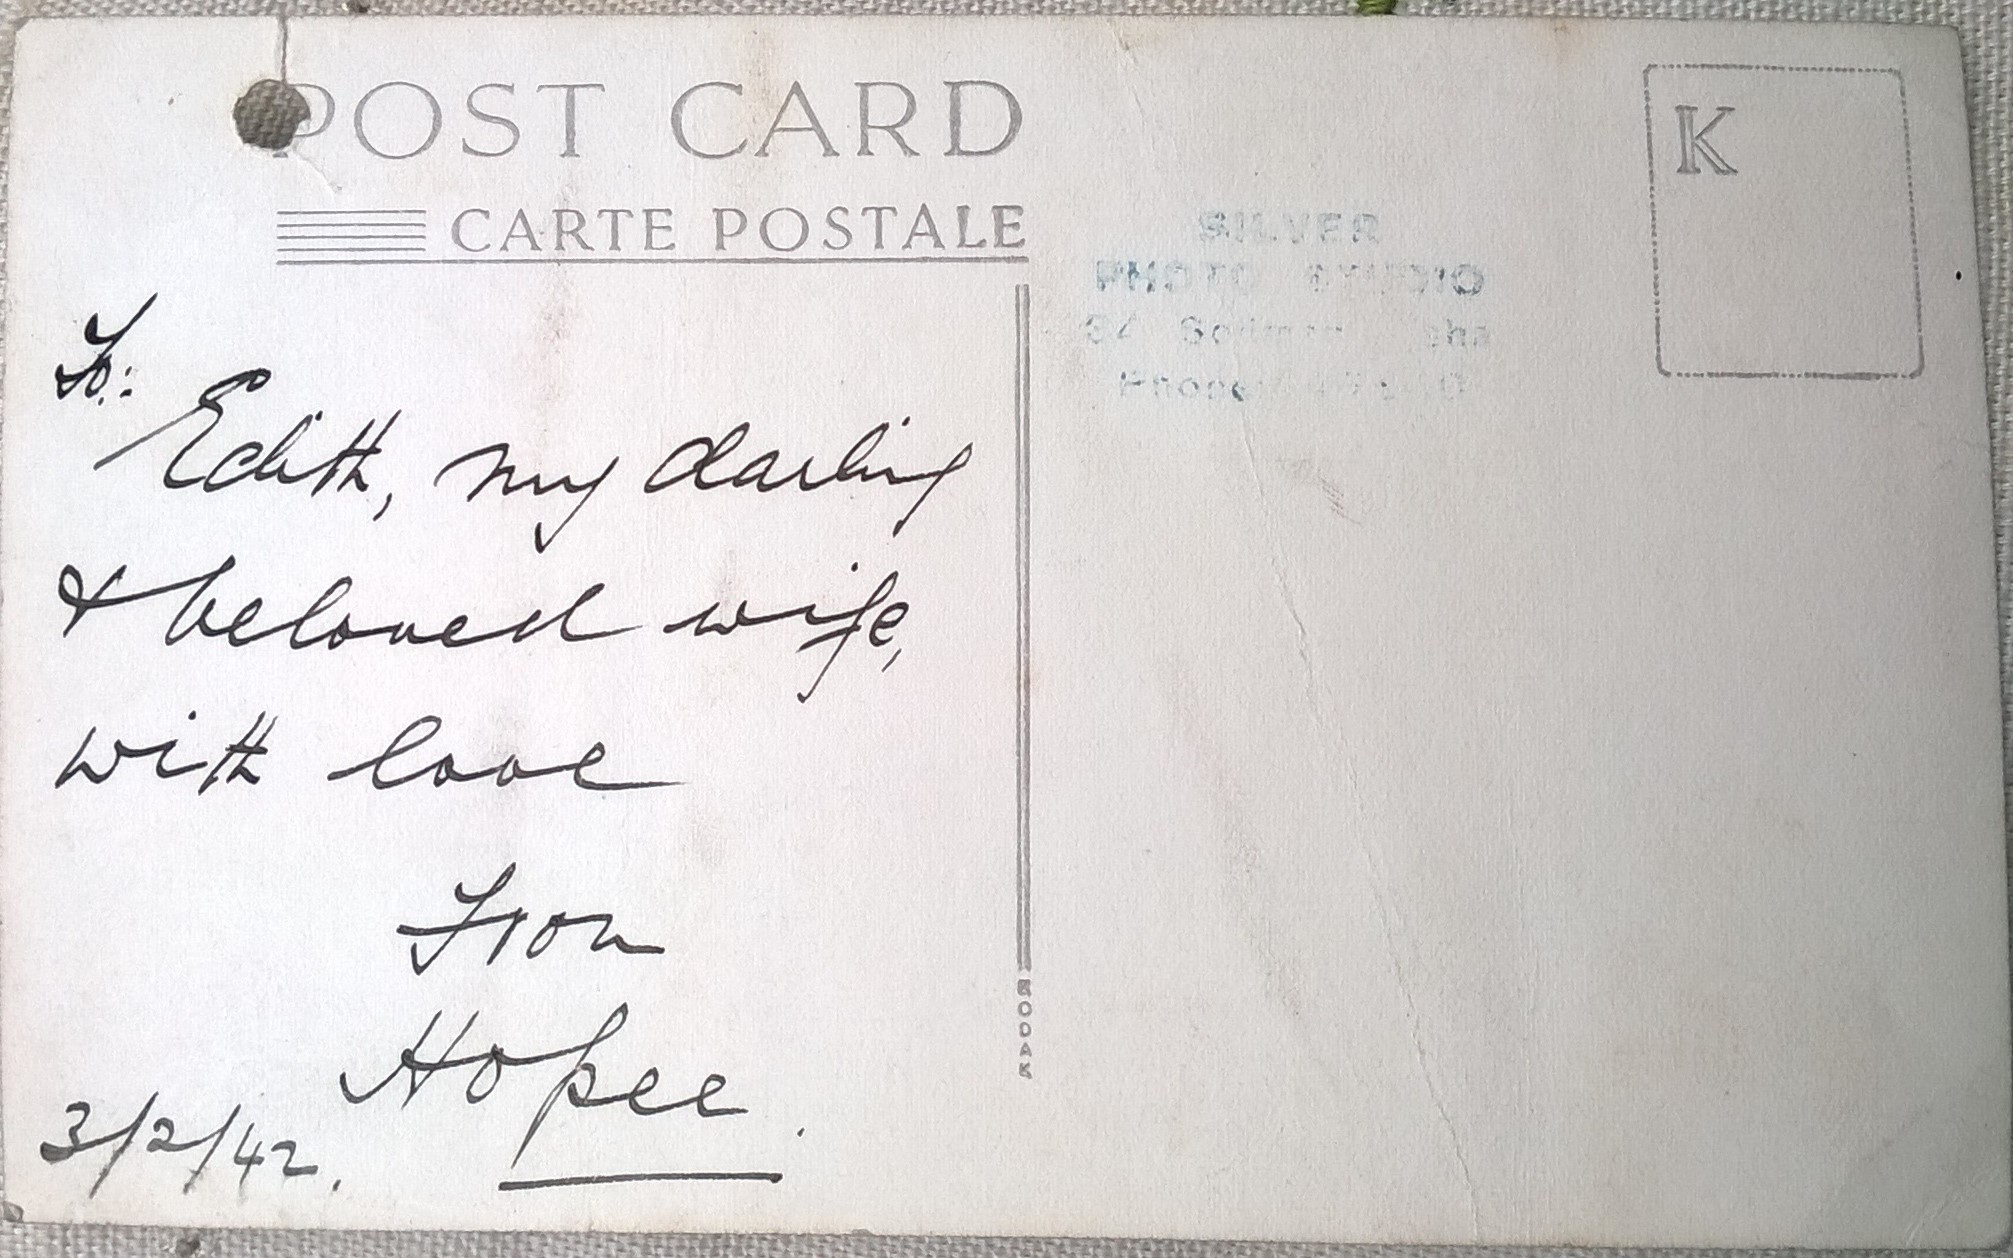 POST CARD
CARTE POSTALE
K
SILVER
PHOTO STUDIO
To:
Edith, my darling
& beloved wife,
with love
From
Hopee.
3/2/42.
KODAK